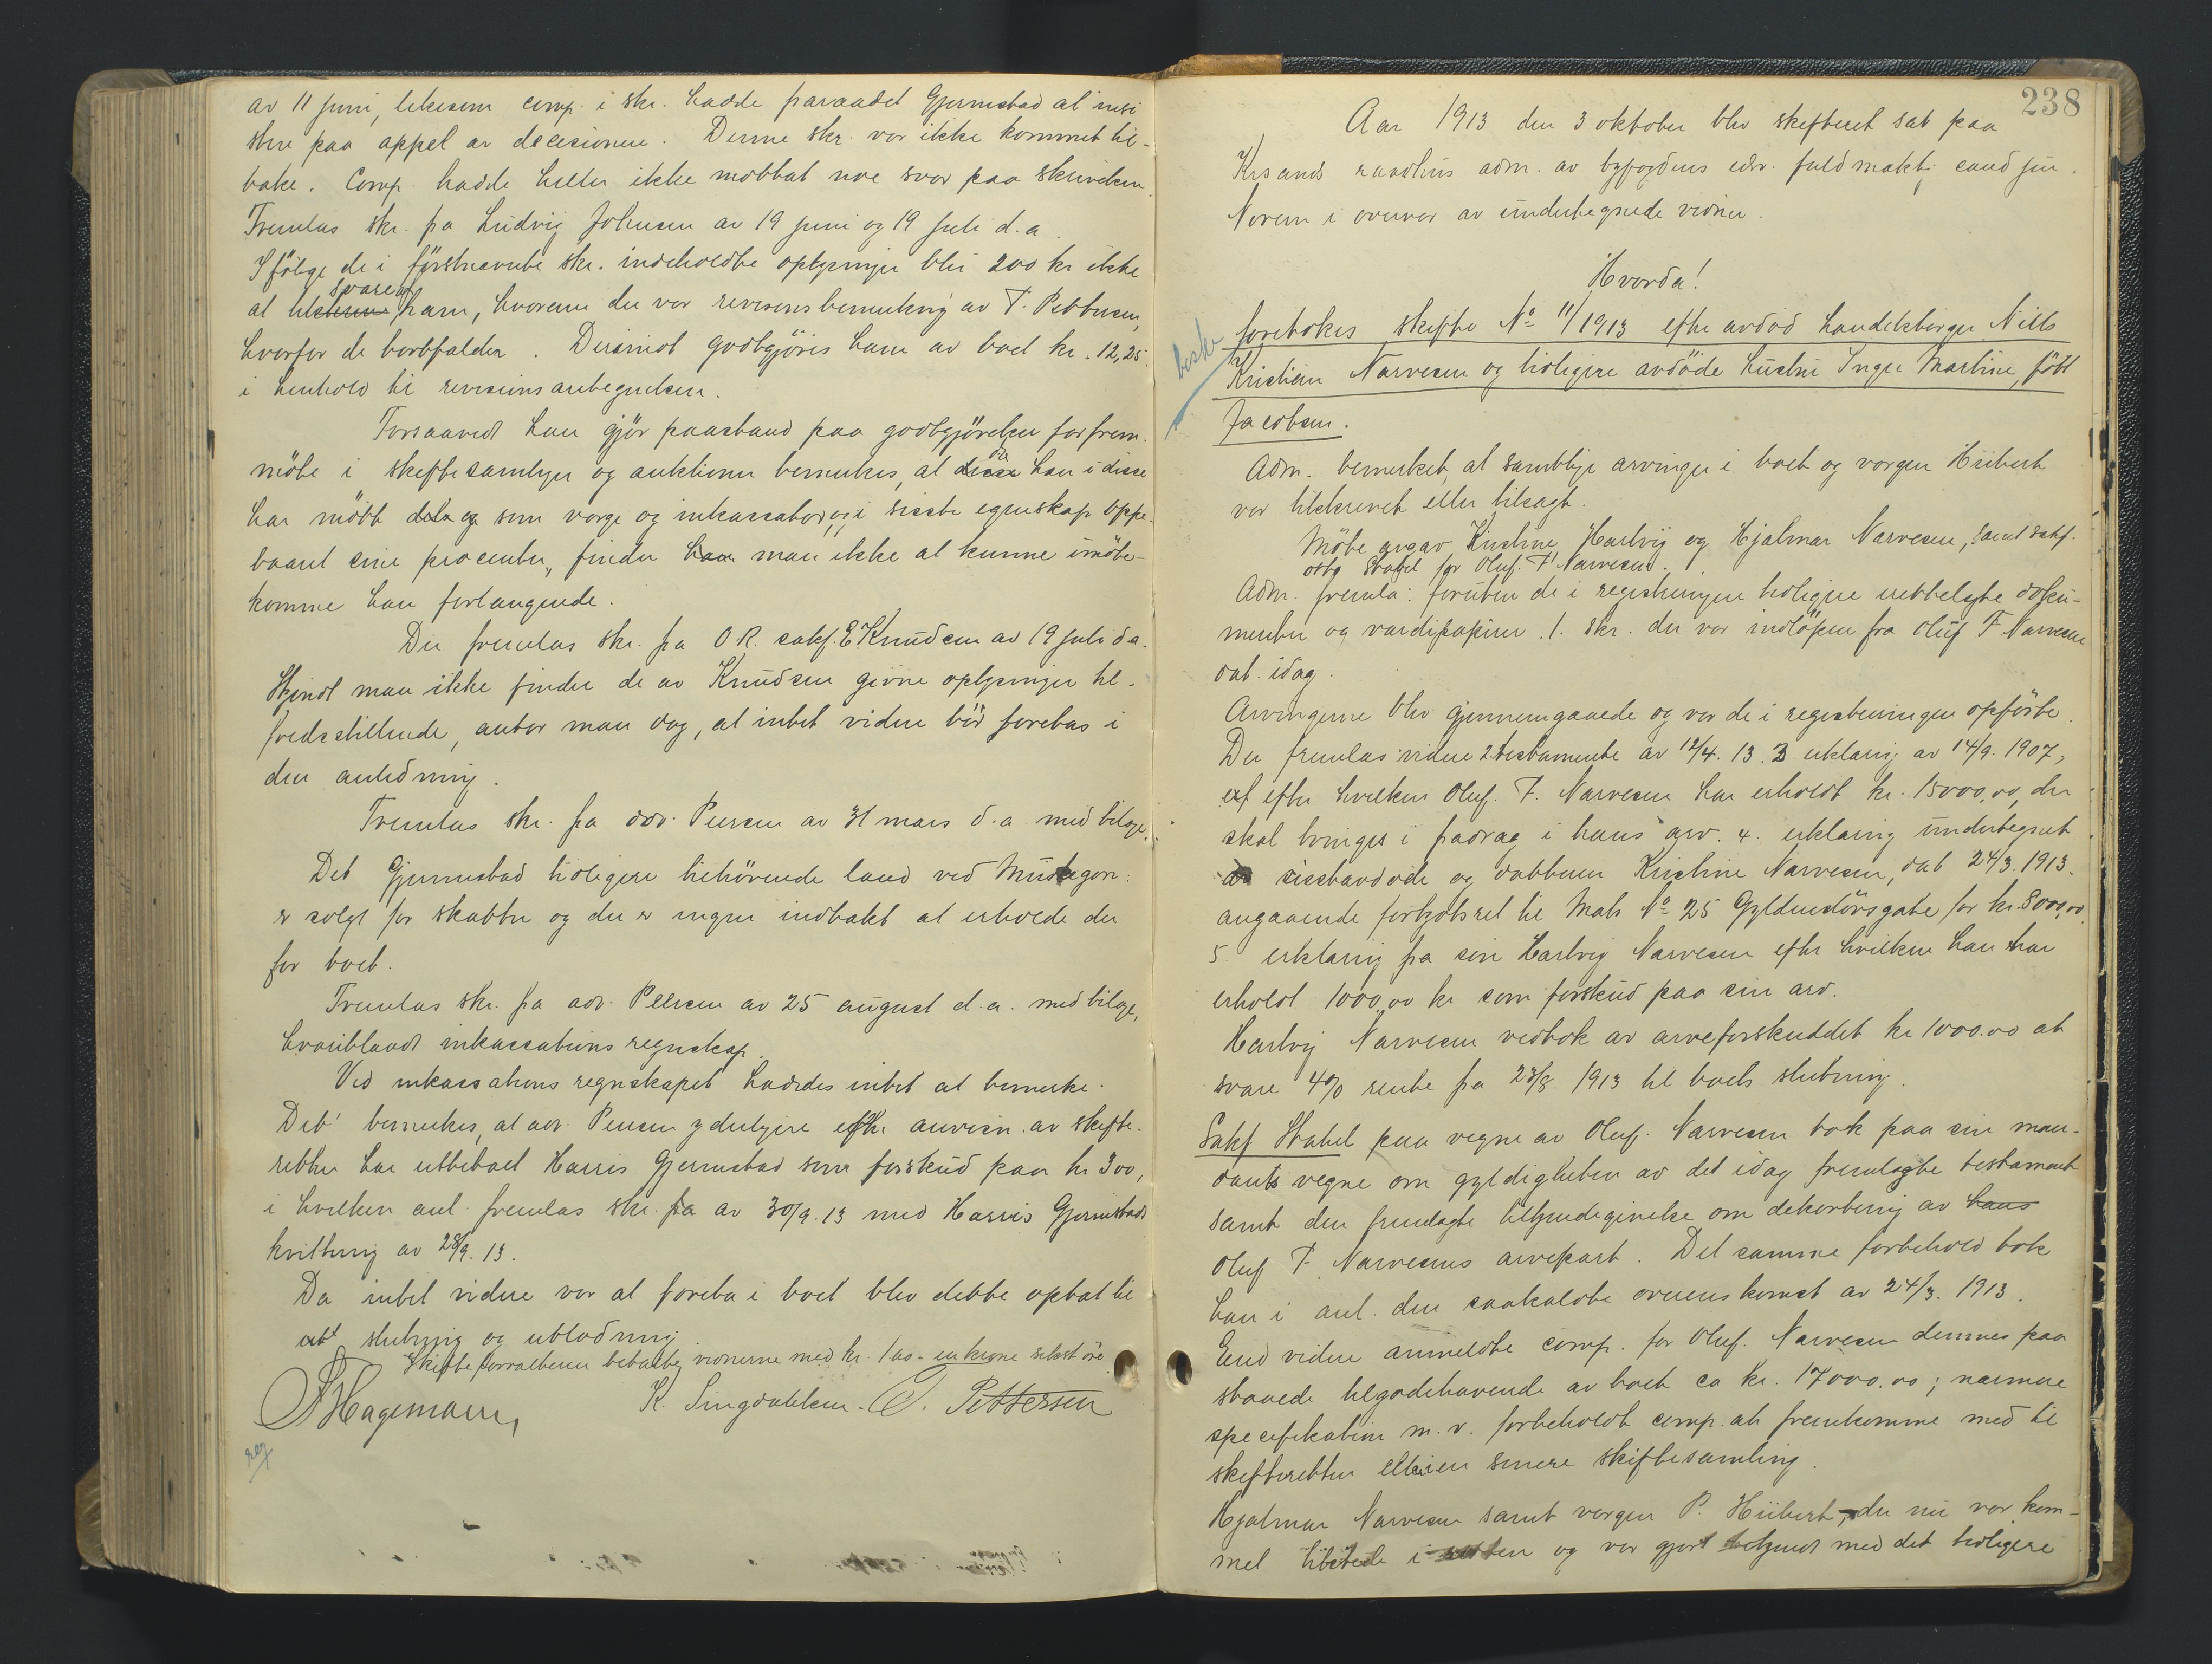 av 11 juni, likesom comp. i skr. hadde fraraadet Gjermstad at insi
stere paa appel av decisionen. Denne skr. var ikke kommet til-
bake. Comp. hadde heller ikke mottat noe svar paa skrivelsen.
Fremlas skr. fra Ludvig Johnsen av 19 juni og 19 juli d.a.
Ifölge de i förstnævnte skr. indeholdte oplysninger blir 200 kr ikke
svare av
at ham, hvorom der var revisionsbemerkning av T. Pettersen,
hvorfor de bortfalder. Derimot godtgjöres ham av boet kr. 12,25
i henhold til revisionsantegnelsen.
Forsaavidt han gjör paastand paa godtgjörelse for frem-
möte i skiftesamlinger og auktioner bemerkes, at da han i disse
har mött dels som verge og inkassator, og i sidste egenskap oppe-
baaret sine procenter, finder man ikke at kunne imöte-
komme hans forlangende.
Der fremlas skr. fra O.R. sakf. E Knudsen av 19 juli d.a.
Skjönt man ikke finder de av Knudsen givne oplysninger til-
fredsstillende, antar man dog, at intet videre bör foretas i
den anledning.
Fremlas skr. fra adv. Peersen av 31 mars d.a. med bilage.
Det Gjermstad tidligere tilhörende land ved Muskegon
er solgt for skatter og der er ingen indtakt at erholde der
for boet.
Fremlas skr. fra adv. Peersen av 25 august d.a. med bilage,
hvoriblandt inkassations regnskap.
Ved inkassations regnskapet haddes intet at bemerke.
Det bemerkes, at adv. Peersen ydeligere efter anvisn. av skifte-
retten har utbetalt Harris Gjermstad som forskud paa kr 300,
i hvilken anl. fremlas skr. fra av 30/9.13 med Harris Gjermstads
kvittering av 28/9. 13.
Da intet videre var at foreta i boet blev dette optat til
slutning og utlodning.
Skifteforvalteren betalte vidnerne med kr. 1.60 - en krone sekst öre.
Hagemann,
K. Singdahlsen. T. Pettersen
reg
238
Aar 1913 den 3 oktober blev skifteret sat paa
Krsands raadhus adm. av byfogdens edsv. fuldmægtig cand jur.
Norem i overvær av undertegnede vidner.
Hvorda!
beskr
foretokes skifte No 11/1913 efter avdöd handelsborger Nils
Kristian Narvesen og tidligere avdöde hustru Inger Martine, fött
Jacobsen.
Adm. bemerket, at samtlige arvinger i boet og vergen Hübert
var tilskrevet eller tilsagt.
Möte avgav Kristine, Hartvig og Hjalmar Narvesen, samt sakf.
Stabel for Oluf. F. Narvesen.
Adm. fremla: foruten de i registreringen tidligere vedhelgte doku-
menter og værdipapirer. 1. skr. der var indlöpen fra Oluf F Narvesen
dat. idag.
Arvingerne blev gjennemgaaede og var de i registreringen opförte.
Der fremlas videre 2. testamente av 12/4. 13. 3 erklæring av 14/9. 1907,
efter hvilken Oluf. F. Narvesen har erholdt kr. 15000,00, der
skal bringes i fradrag i hans arv. 4. erklæring undertegnet
av sisstavdöde og datteren Kristine Narvesen, dat 24/3. 1913.
angaaende forkjöbsret til Matr No 25 Gyldenlövsgate for kr. 8000,00.
5. erklæring fra sön Hartvig Narvesen efter hvilken han har
erholdt 1000,00 kr som forskud paa sin arv.
Hartvig Narvesen vedtok av arveforskuddet kr 1000.00 at
svare 4% rente fra 23/8. 1913 til boets slutning.
Sakf. Stabel paa vegne av Oluf. Narvesen tok paa sin man-
dants vegne om gyldigheten av det idag fremlagte testament
samt den fremlagte tilkjendegivelse om dekortering av hans
Oluf F. Narvesens arvepart. Det samme forbehold tok
han i anl. den saakaldte overenskomst av 24/3. 1913.
End videre anmeldte comp. for Oluf. Narvesen dennes paa
staaede tilgodehavende av boet ca kr. 17000.00; nærmere
specifikation m.v. forbeholdt comp. at fremkomme med til
skifteretten eller i en senere skiftesamling.
Hjalmar Narvesen samt vergen P. Hübert, der nu var kom-
met tilstede i retten og var gjort bekjendt med det tidligere